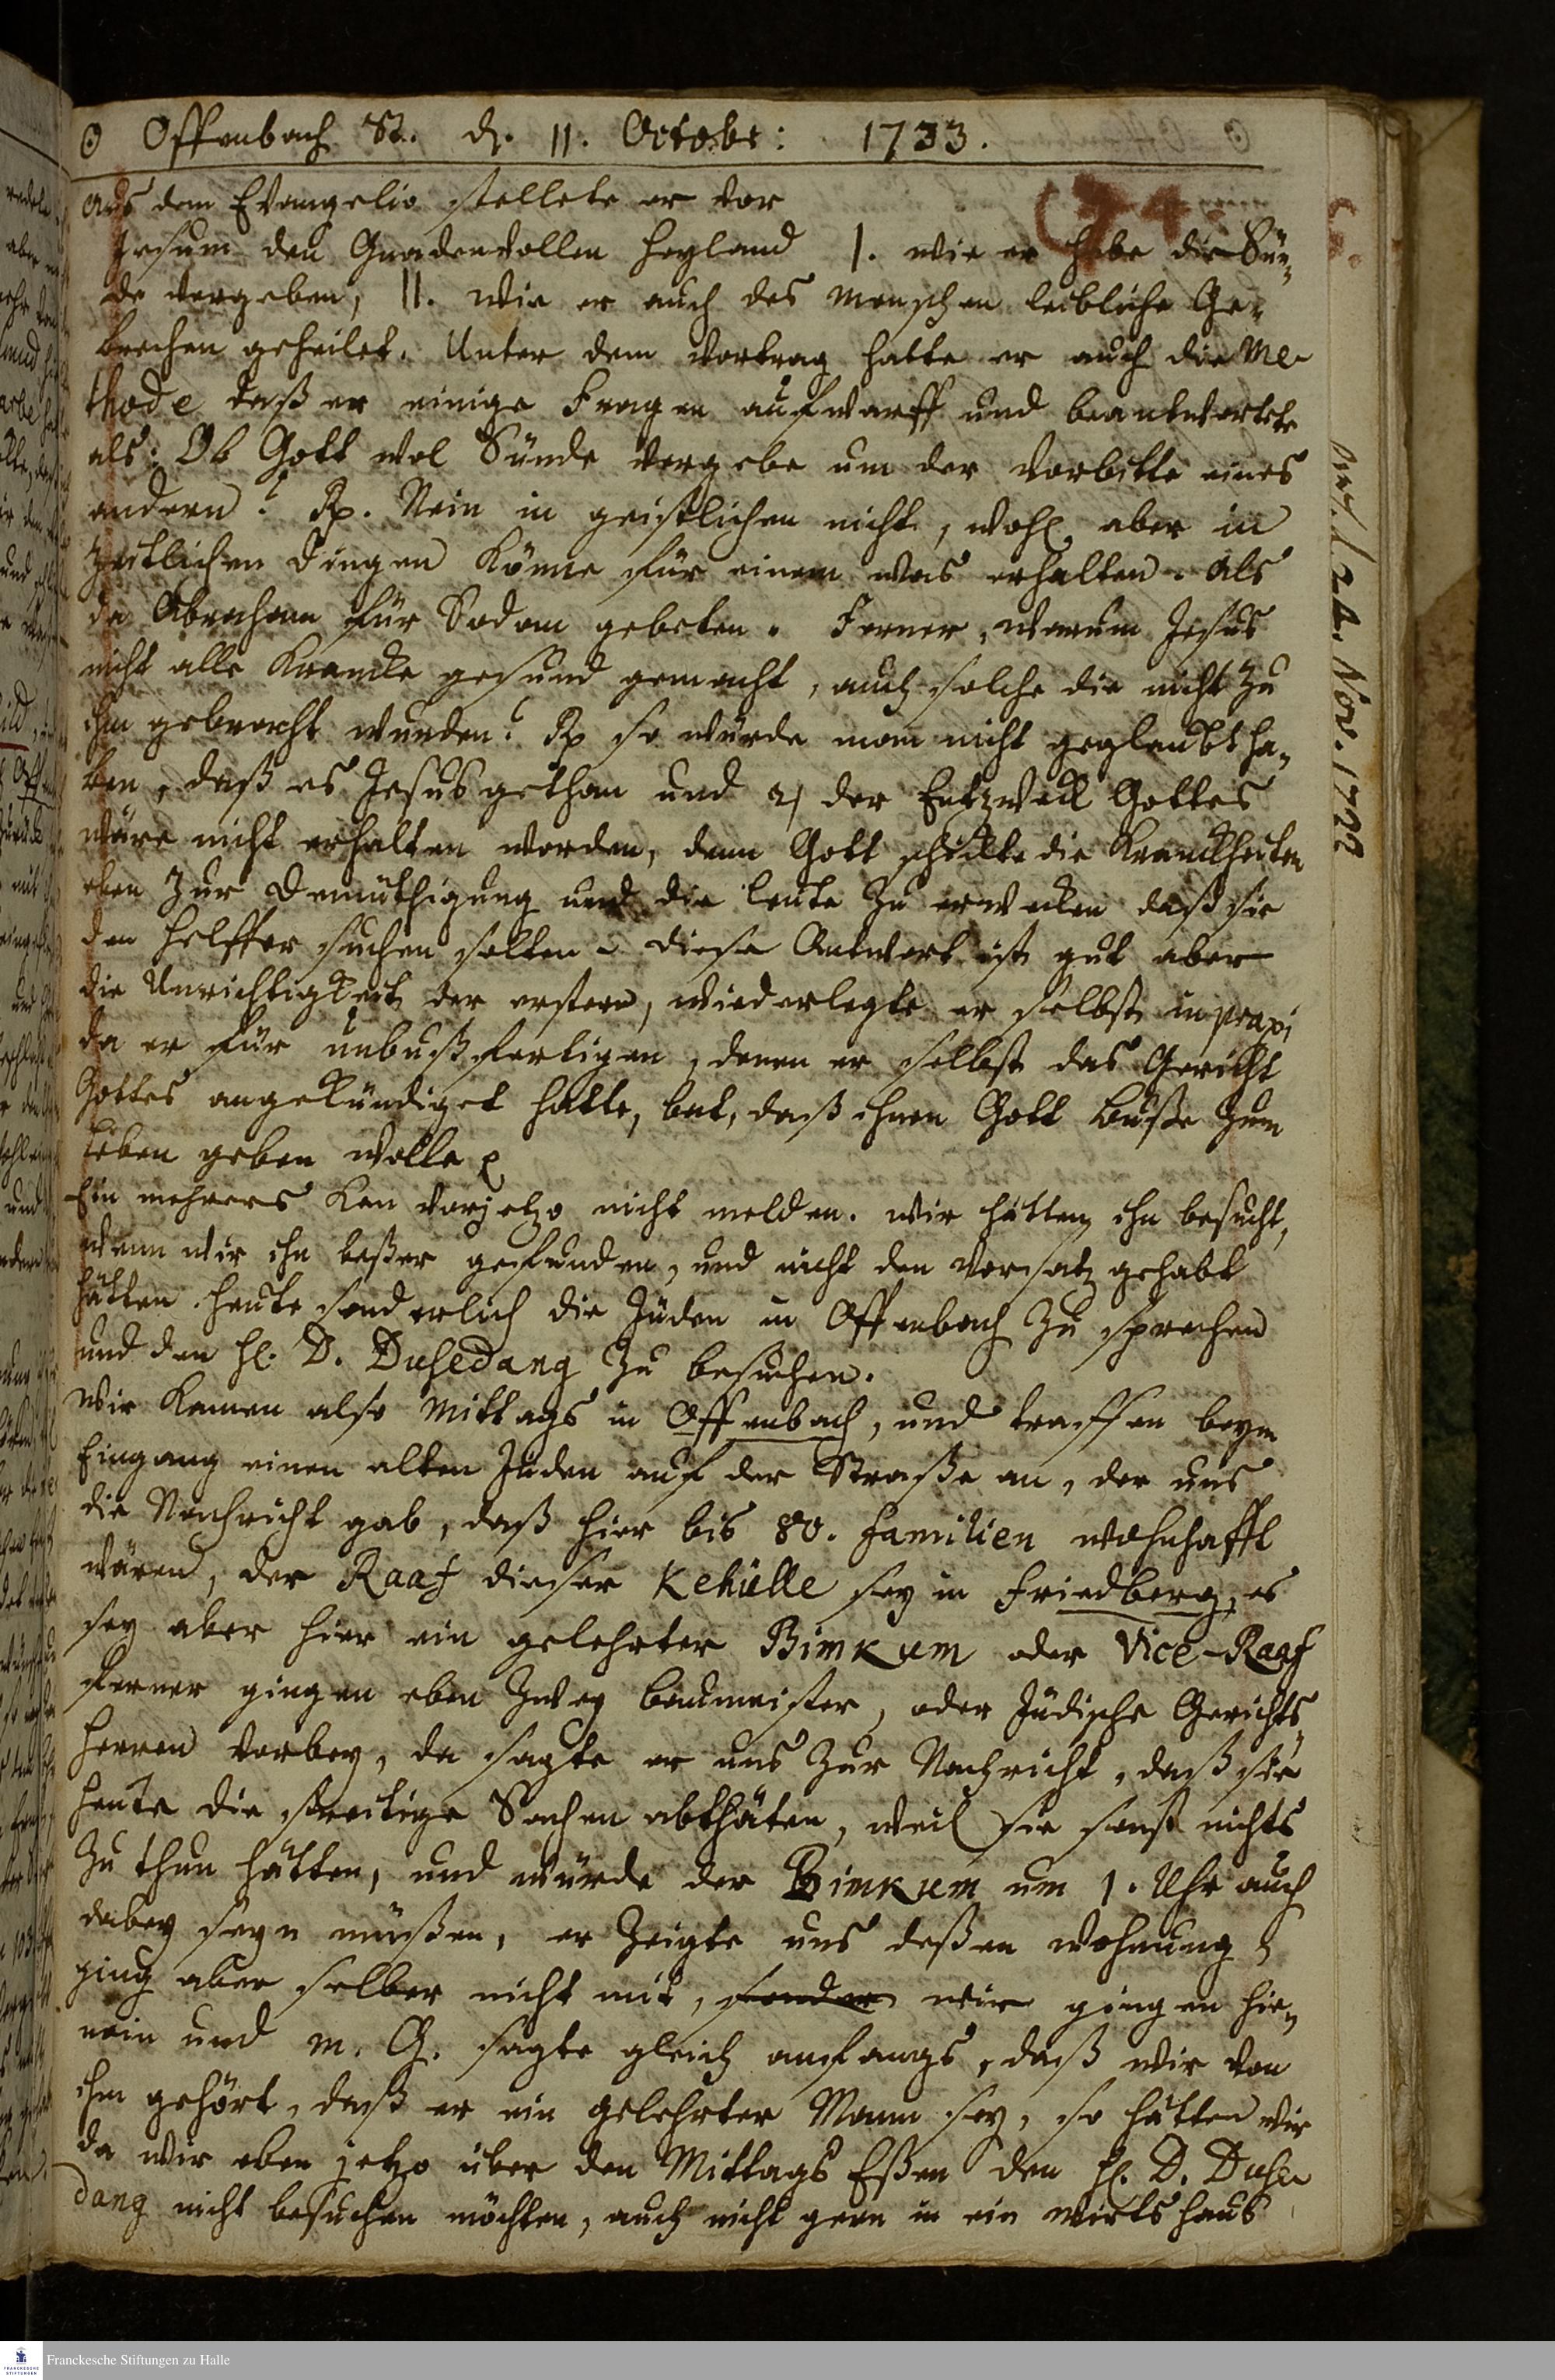 ☉ Offenbach St. d. 11. Octobr: 1733.
(74.
aus dem Evangelio stellete er vor
Jesum den Gnadenvollen Heyland 1. wie er habe die Sün-
de vergeben, 11. wie er auch des Menschen leibliche Ge-
brechen geheilet. Unter dem Vortrag hatte er auch die Me-
thode daß er einige Fragen aufwarff und beantwortete
als: Ob Gott wol Sünde vergebe um der Vorbitte eines
andern? Rp. Nein in geistlichen nicht, wohl aber in
zeitlichen Dingen könne für einem was erhalten. als
da Abraham für Sodom gebeten. Ferner, warum Jesus
nicht alle Krancke gesund gemacht, auch solche die nicht zu
ihm gebracht wurden? Rp so würde man nicht geglaubt ha-
ben, daß es Jesus gethan und 2) der Entzweck Gottes
wäre nicht erhalten worden, denn Gott schickte die Kranckheiten
eben zur Demüthigung und die Leute zu erwecken daß sie
den Helffer suchen solten. Diese Antwort ist gut aber
die Unrichtigkeit der erstern, wiederlegte er selbst in praxi
da er für unbußfertigen, denen er selbst das Gericht
Gottes angekündiget hatte, bat, daß ihnen Gott Buße zum
Leben geben wolle
Ein mehrers kan vorjetzo nicht melden. wir hätten ihn besucht,
wenn wir ihn beßer gefunden, und nicht den Vorsatz gehabt
hätten heute sonderlich die Juden in Offenbach zu sprechen
und den H. D. Duhedang zu besuchen.
Wir kamen also Mittags in Offenbach, und traffen beym
Eingang einen alten Juden auf der Straße an, der uns
die Nachricht gab, daß hier bis 80. Familien wohnhafft
wären, der Raaf dieser Kehille sey in Friedberg, es
sey aber hier ein gelehrter Bimkum oder Vice-Raaf
ferner gingen eben zwey Baumeister, oder Jüdische Gerichts-
Herren vorbey, da sagte er uns zur Nachricht, daß sie
heute die streitige Sachen abthäten, weil sie sonst nichts
zu thun hätten, und würde der Bimkum um 1. Uhr auch
dabey seyn müßen, er zeigte uns deßen Wohnung,
ging aber selber nicht mit, sondern wir gingen hin-
nein und M. G. sagte gleich anfangs, daß wir von
ihm gehört, daß er ein gelehrter Mann sey, so hätten wir
da wir eben jetzo über den Mittags Eßen den H. D. Duhe
dang nicht besuchen möchten, auch nicht gern in ein Wirtshaus
Nov. 1733
Franckesche Stiftungen zu Halle